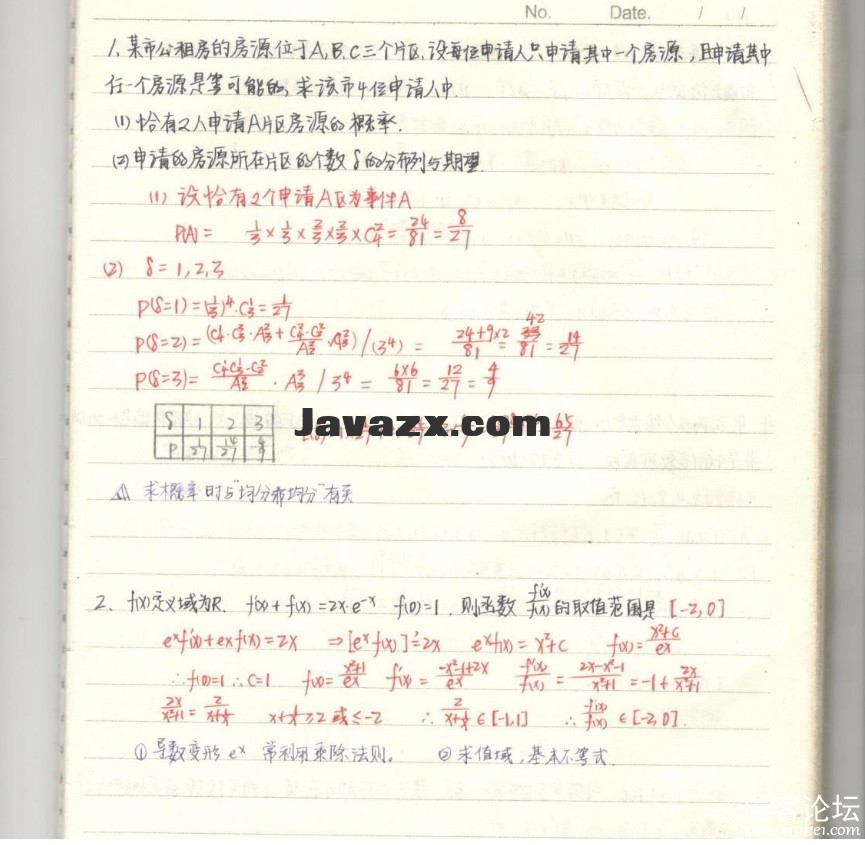 No. Date. / /
1.某市公租房的房源位于A,B,C三个片区,设每位申请人只申请其中一个房源,且申请其中
任一个房源是等可能的,求该市4位申请人中.
(1)恰有2人申请A片区房源的概率.
(2)申请的房源所在片区的个数δ的分布列与期望.
(1) 设恰有2个申请A区为事件A
P(A)= 1/3×1/3×2/3×2/3×C₄²=24/81=8/27
(2) δ=1,2,3
P(δ=1)=(1/3)⁴·C₃¹=1/27
P(δ=2)= /(3⁴)= (24+9×2)/81=42/81=14/27
P(δ=3)= ·A₃³/3⁴=(6×6)/81=12/27=4/9
δ 1 2 3
P 1/27 14/27 4/9
Javazx.com
65/27
求概率时与"均分乖均分"有关
2. f(x)定义域为R. f'(x)+f(x)=2x·e^-x f(0)=1.则函数f'(x)/f(x)的取值范围是[-2,0]
e^x f'(x)+e^x f(x)=2x ⇒[e^x f(x)]'=2x e^x f(x)=x²+c f(x)=(x²+c)/e^x
∴f(0)=1∴C=1 f(x)=(x²+1)/e^x f'(x)=(-x²-1+2x)/e^x f'(x)/f(x)=(2x-x²-1)/(x²+1)=-1+2x/(x²+1)
2x/(x²+1)=2/(x+1/x) x+1/x≥2或≤-2 ∴2/(x+1/x)∈[-1,1] ∴f'(x)/f(x)∈[-2,0].
①导数变形e^x常利用乘除法则. ②求值域,基本不等式.
客论坛